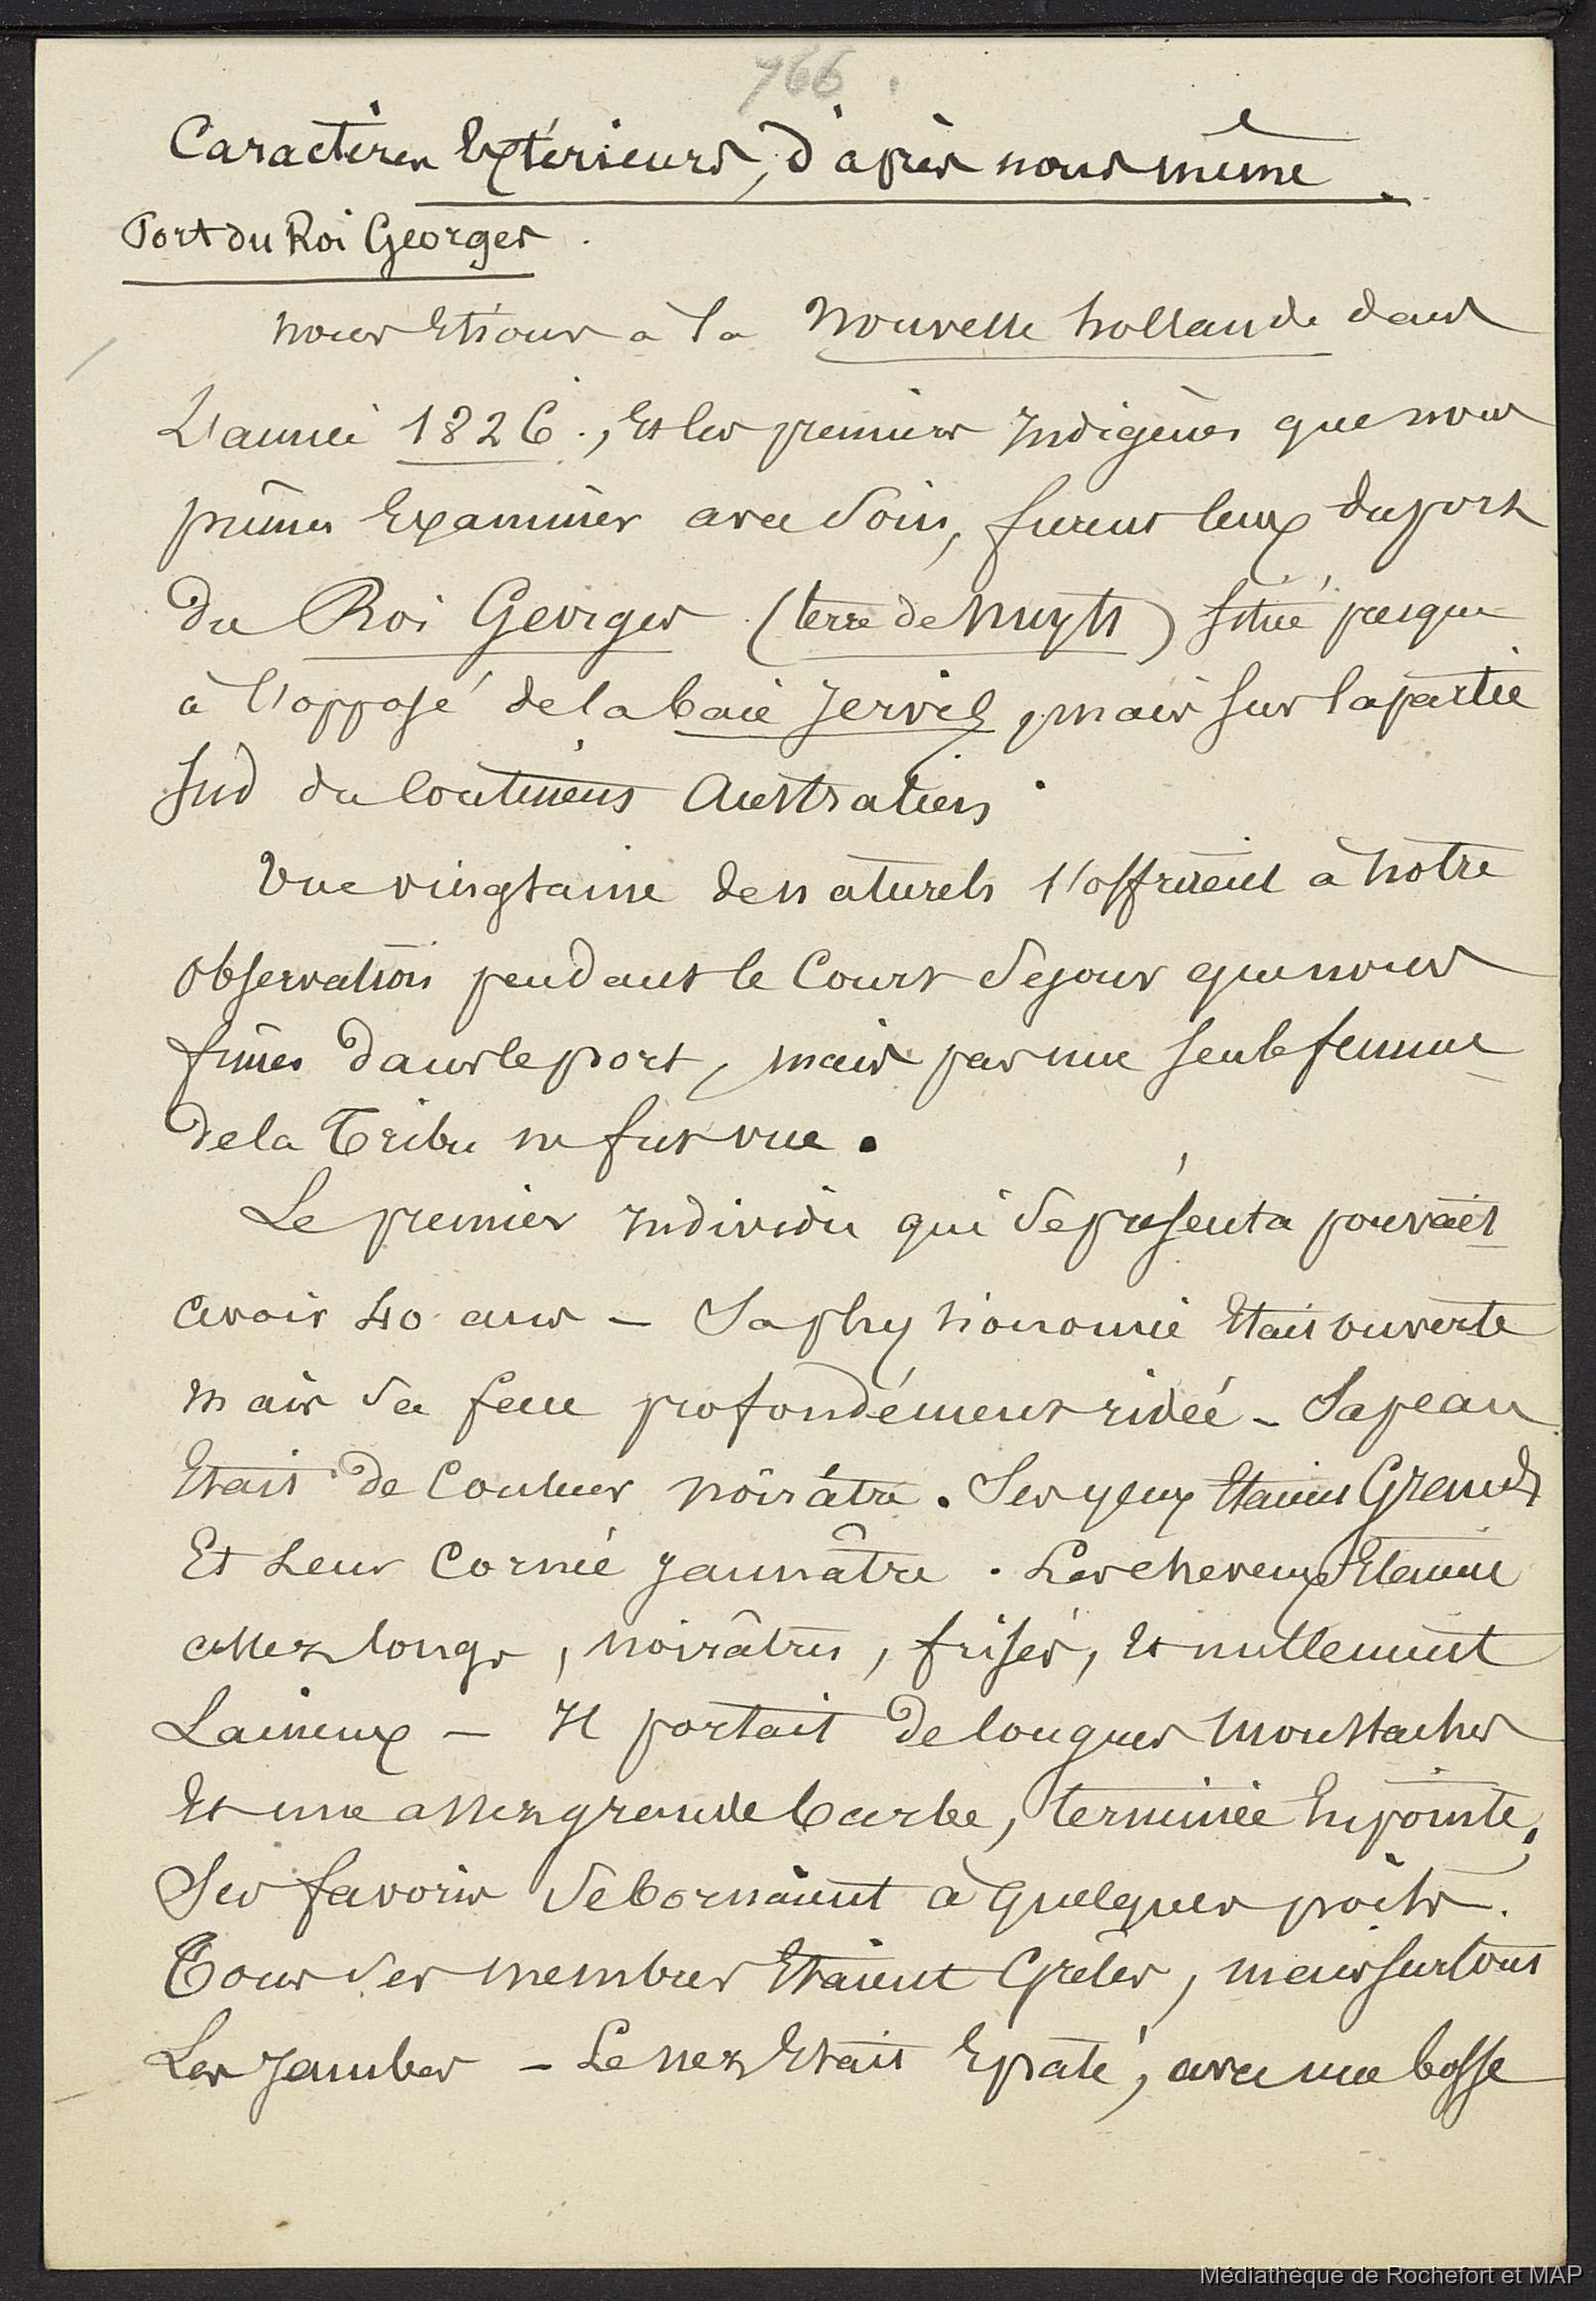 766.
Caractères Extérieurs, d'après nous même.
Port du Roi Georges.
nous Etions à la Nouvelle hollande dans
L'année 1826., Et les premiers Indigènes que nous
pûmes Examiner avec Soin, furent ceux du port
du Roi Georges (terre de Nuyts) Situé presque
à l'opposé de la baie Jervis, mais sur la partie
Sud du Continent Australien.
Une vingtaine de naturels s'offrirent à notre
observation pendant le Court Séjour que nous
fîmes dans le port, mais pas une seule femme
de la Tribu ne fut vue.
Le premier Individu qui Se présenta pouvait
avoir 40 ans - Sa physionomie Etait ouverte
mais Sa face profondément ridée - Sa peau
Etait de Couleur noirâtre. Ses yeux Etaient Grands
Et Leur Cornée Jaunâtre. Les cheveux Etaient
assez longs, noirâtres, frisés, Et nullement
Laineux - Il portait de longues Moustaches
Et une assez grande barbe, terminée En pointe,
Ses favoris Se bornaient à Quelques poils.
Tous Ses Membres Etaient Grêles, mais surtout
Les Jambes - Le nez Etait Epaté, avec une bosse
Médiathèque de Rochefort et MAP